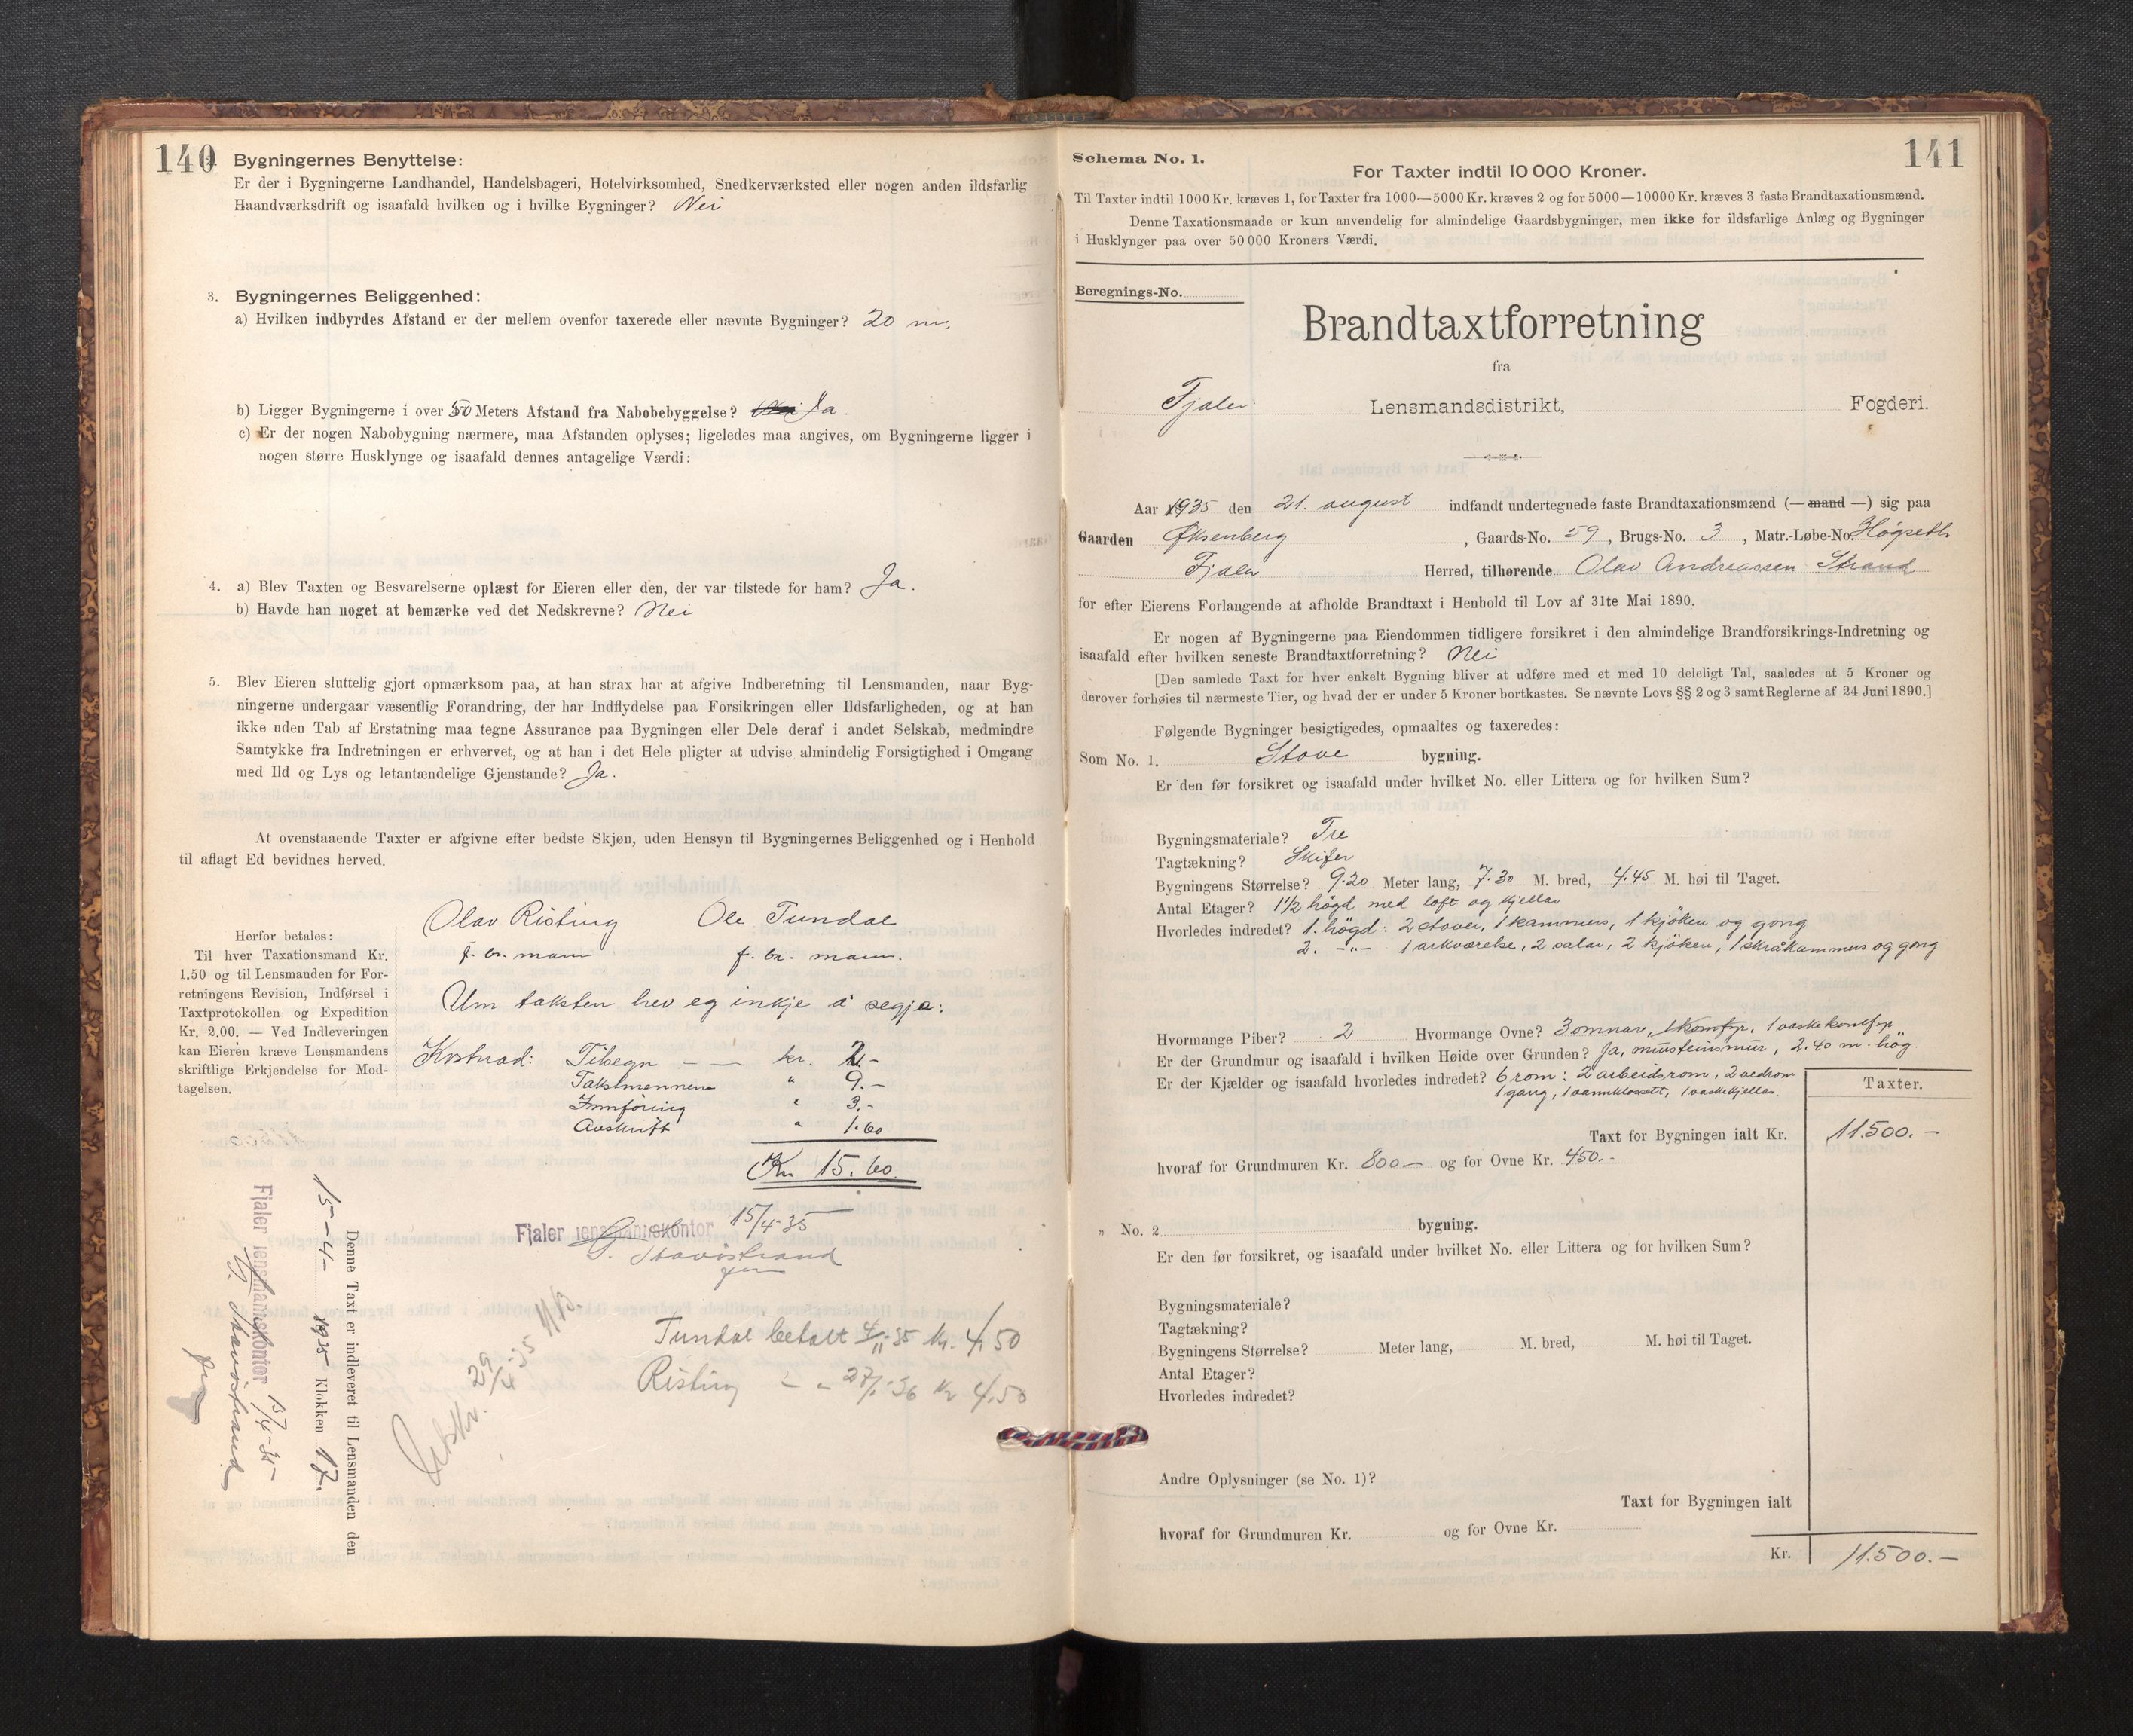 140
2. Bygningernes Benyttelse:
Er der i Bygningerne Landhandel, Handelsbageri, Hotelvirksomhed, Snedkerværksted eller nogen anden ildsfarlig
Haandværksdrift og isaafald hvilken og i hvilke Bygninger? Nei
3. Bygningernes Beliggenhed:
a) Hvilken indbyrdes Afstand er der mellem ovenfor taxerede eller nævnte Bygninger? 20 m.
b) Ligger Bygningerne i over 50 Meters Afstand fra Nabobebyggelse? Nei Ja.
c) Er der nogen Nabobygning nærmere, maa Afstanden oplyses; ligeledes maa angives, om Bygningerne ligger i
nogen større Husklynge og isaafald dennes antagelige Værdi:
4. a) Blev Taxten og Besvarelserne oplæst for Eieren eller den, der var tilstede for ham? Ja.
b) Havde han noget at bemærke ved det Nedskrevne? Nei
5. Blev Eieren sluttelig gjort opmærksom paa, at han strax har at afgive Indberetning til Lensmanden, naar Byg-
ningerne undergaar væsentlig Forandring, der har Indflydelse paa Forsikringen eller Ildsfarligheden, og at han
ikke uden Tab af Erstatning maa tegne Assurance paa Bygningen eller Dele deraf i andet Selskab, medmindre
Samtykke fra Indretningen er erhvervet, og at han i det Hele pligter at udvise almindelig Forsigtighed i Omgang
med Ild og Lys og letantændelige Gjenstande? Ja.
At ovenstaaende Taxter er afgivne efter bedste Skjøn, uden Hensyn til Bygningernes Beliggenhed og i Henhold
til aflagt Ed bevidnes herved.
Olav Risting Ole Tundal
f. br. mann f. br. mann.
Herfor betales:
Til hver Taxationsmand Kr.
1.50 og til Lensmanden for For-
retningens Revision, Indførsel i
Taxtprotokollen og Expedition
Kr. 2.00. — Ved Indleveringen
kan Eieren kræve Lensmandens
skriftlige Erkjendelse for Mod-
tagelsen.
Um taksten hev eg inkje å segja:
Kostnad: Tilsegn — — kr. 2.-
Takstmennene " 9.-
Innföring " 3.-
Avskrift " 1.60
Kr. 15.60
Fjaler lensmannskontor 15/4-35
Stavöstrand
Tundal betalt 4/11-35 kr. 4,50
Risting " - " 27/1-36 Kr 4,50
Denne Taxt er indleveret til Lensmanden den
15-4- 1935 Klokken 17.
Fjaler lensmannskontor 15/4-35
Stavöstrand
141
Schema No. 1.
For Taxter indtil 10 000 Kroner.
Til Taxter indtil 1000 Kr. kræves 1, for Taxter fra 1000—5000 Kr. kræves 2 og for 5000—10000 Kr. kræves 3 faste Brandtaxationsmænd.
Denne Taxationsmaade er kun anvendelig for almindelige Gaardsbygninger, men ikke for ildsfarlige Anlæg og Bygninger
i Husklynger paa over 50 000 Kroners Værdi.
Beregnings-No.
Brandtaxtforretning
fra
Fjaler Lensmandsdistrikt, Fogderi.
Aar 1935 den 21. august indfandt undertegnede faste Brandtaxationsmænd (— mand —) sig paa
Gaarden Øksenberg, Gaards-No. 59, Brugs-No. 3, Matr.-Løbe-No. Högseth
Fjaler Herred, tilhørende Olav Andreassen Strand
for efter Eierens Forlangende at afholde Brandtaxt i Henhold til Lov af 31te Mai 1890.
Er nogen af Bygningerne paa Eiendommen tidligere forsikret i den almindelige Brandforsikrings-Indretning og
isaafald efter hvilken seneste Brandtaxtforretning? Nei
[Den samlede Taxt for hver enkelt Bygning bliver at udføre med et med 10 deleligt Tal, saaledes at 5 Kroner og
derover forhøies til nærmeste Tier, og hvad der er under 5 Kroner bortkastes. Se nævnte Lovs §§ 2 og 3 samt Reglerne af 24 Juni 1890.]
Følgende Bygninger besigtigedes, opmaaltes og taxeredes:
Som No. 1. Stove bygning.
Er den før forsikret og isaafald under hvilket No. eller Littera og for hvilken Sum?
Bygningsmateriale? Tre
Tagtækning? Skifer
Bygningens Størrelse? 9.20 Meter lang, 7.30 M. bred, 4.45 M. høi til Taget.
Antal Etager? 1½ högd med loft og kjellar
Hvorledes indredet? 1. högd: 2 stover, 1 kammers, 1 kjöken og gong
2. -"- 1 arkværelse, 2 salar, 2 kjöken, 1 skråkammers og gong
Hvormange Piber? 2 Hvormange Ovne? 3 omnar, 1 komfyr, 1 vaskekomfyr
Er der Grundmur og isaafald i hvilken Høide over Grunden? Ja, mursteinsmur, 2.40 m. hög.
Er der Kjælder og isaafald hvorledes indredet? 6 rom: 2 arbeidsrom, 2 vedrom
1 gang, 1 vannklosett, 1 vaskekjellar.
Taxter.
Taxt for Bygningen ialt Kr. 11.500.—
hvoraf for Grundmuren Kr. 800.— og for Ovne Kr. 450.-
" No. 2 bygning.
Er den før forsikret, og isaafald under hvilket No. eller Littera og for hvilken Sum?
Bygningsmateriale?
Tagtækning?
Bygningens Størrelse? Meter lang, M. bred, M. høi til Taget.
Antal Etager?
Hvorledes indredet?
Andre Oplysninger (se No. 1)?
Taxt for Bygningen ialt
hvoraf for Grundmuren Kr. og for Ovne Kr.
Kr. 11.500.—